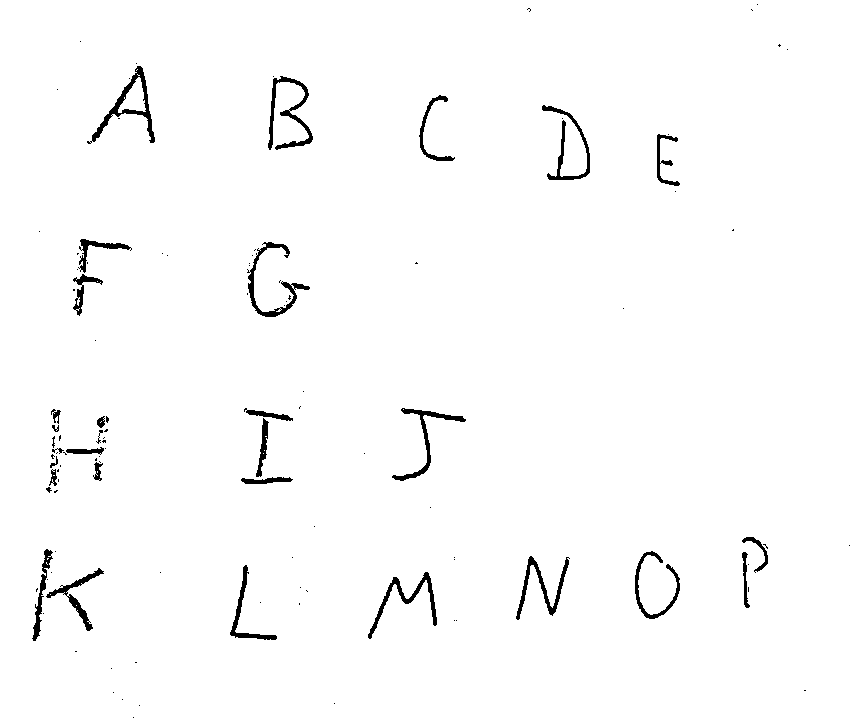 A B C D E
F G
H I J
K L M N O P